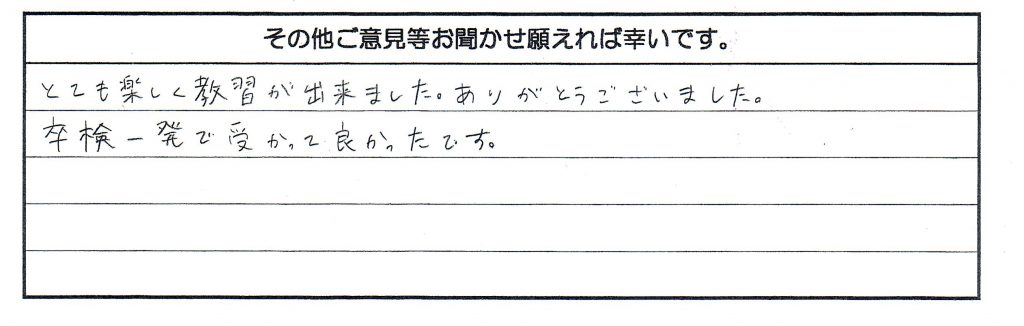 その他ご意見等お聞かせ願えれば幸いです。
とても楽しく教習が出来ました。ありがとうございました。
卒検一発で受かって良かったです。